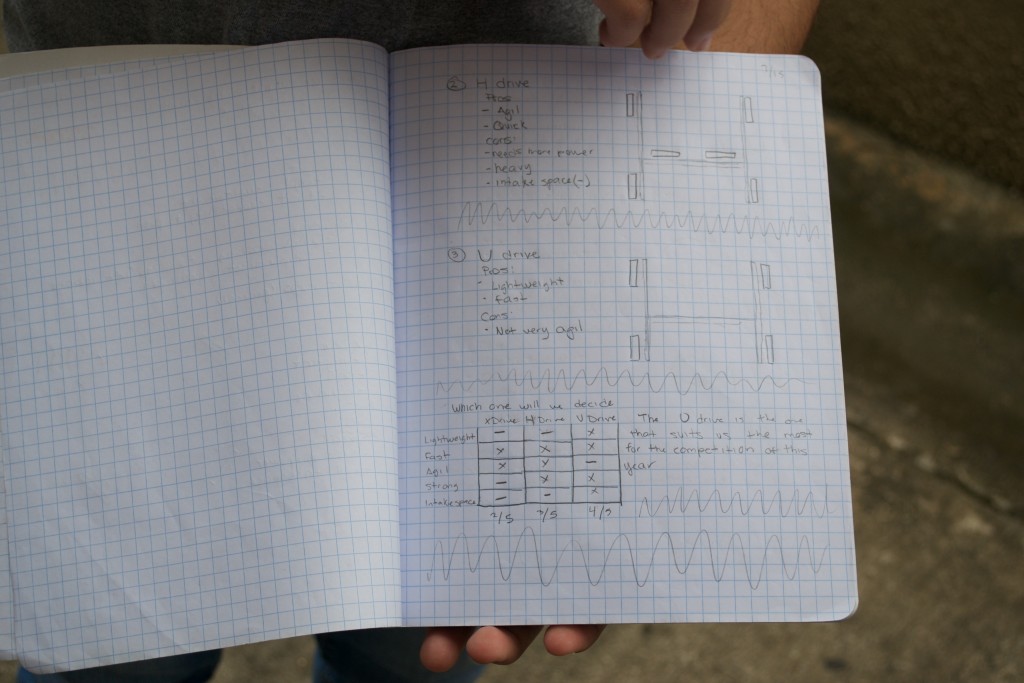 ② H drive
Pros
- Agil
- Quick
Cons:
- needs more power
- heavy
- intake space (-)
③ U drive
Pros:
- Lightweight
- fast
Cons:
- Not very agil
which one will we decide
X Drive H Drive U Drive
Lightweight — — x
Fast x x x
Agil x x —
Strong — x x
Intake space — — x
2/5 3/5 4/5
The U drive is the one
that suits us the most
for the competition of this
year